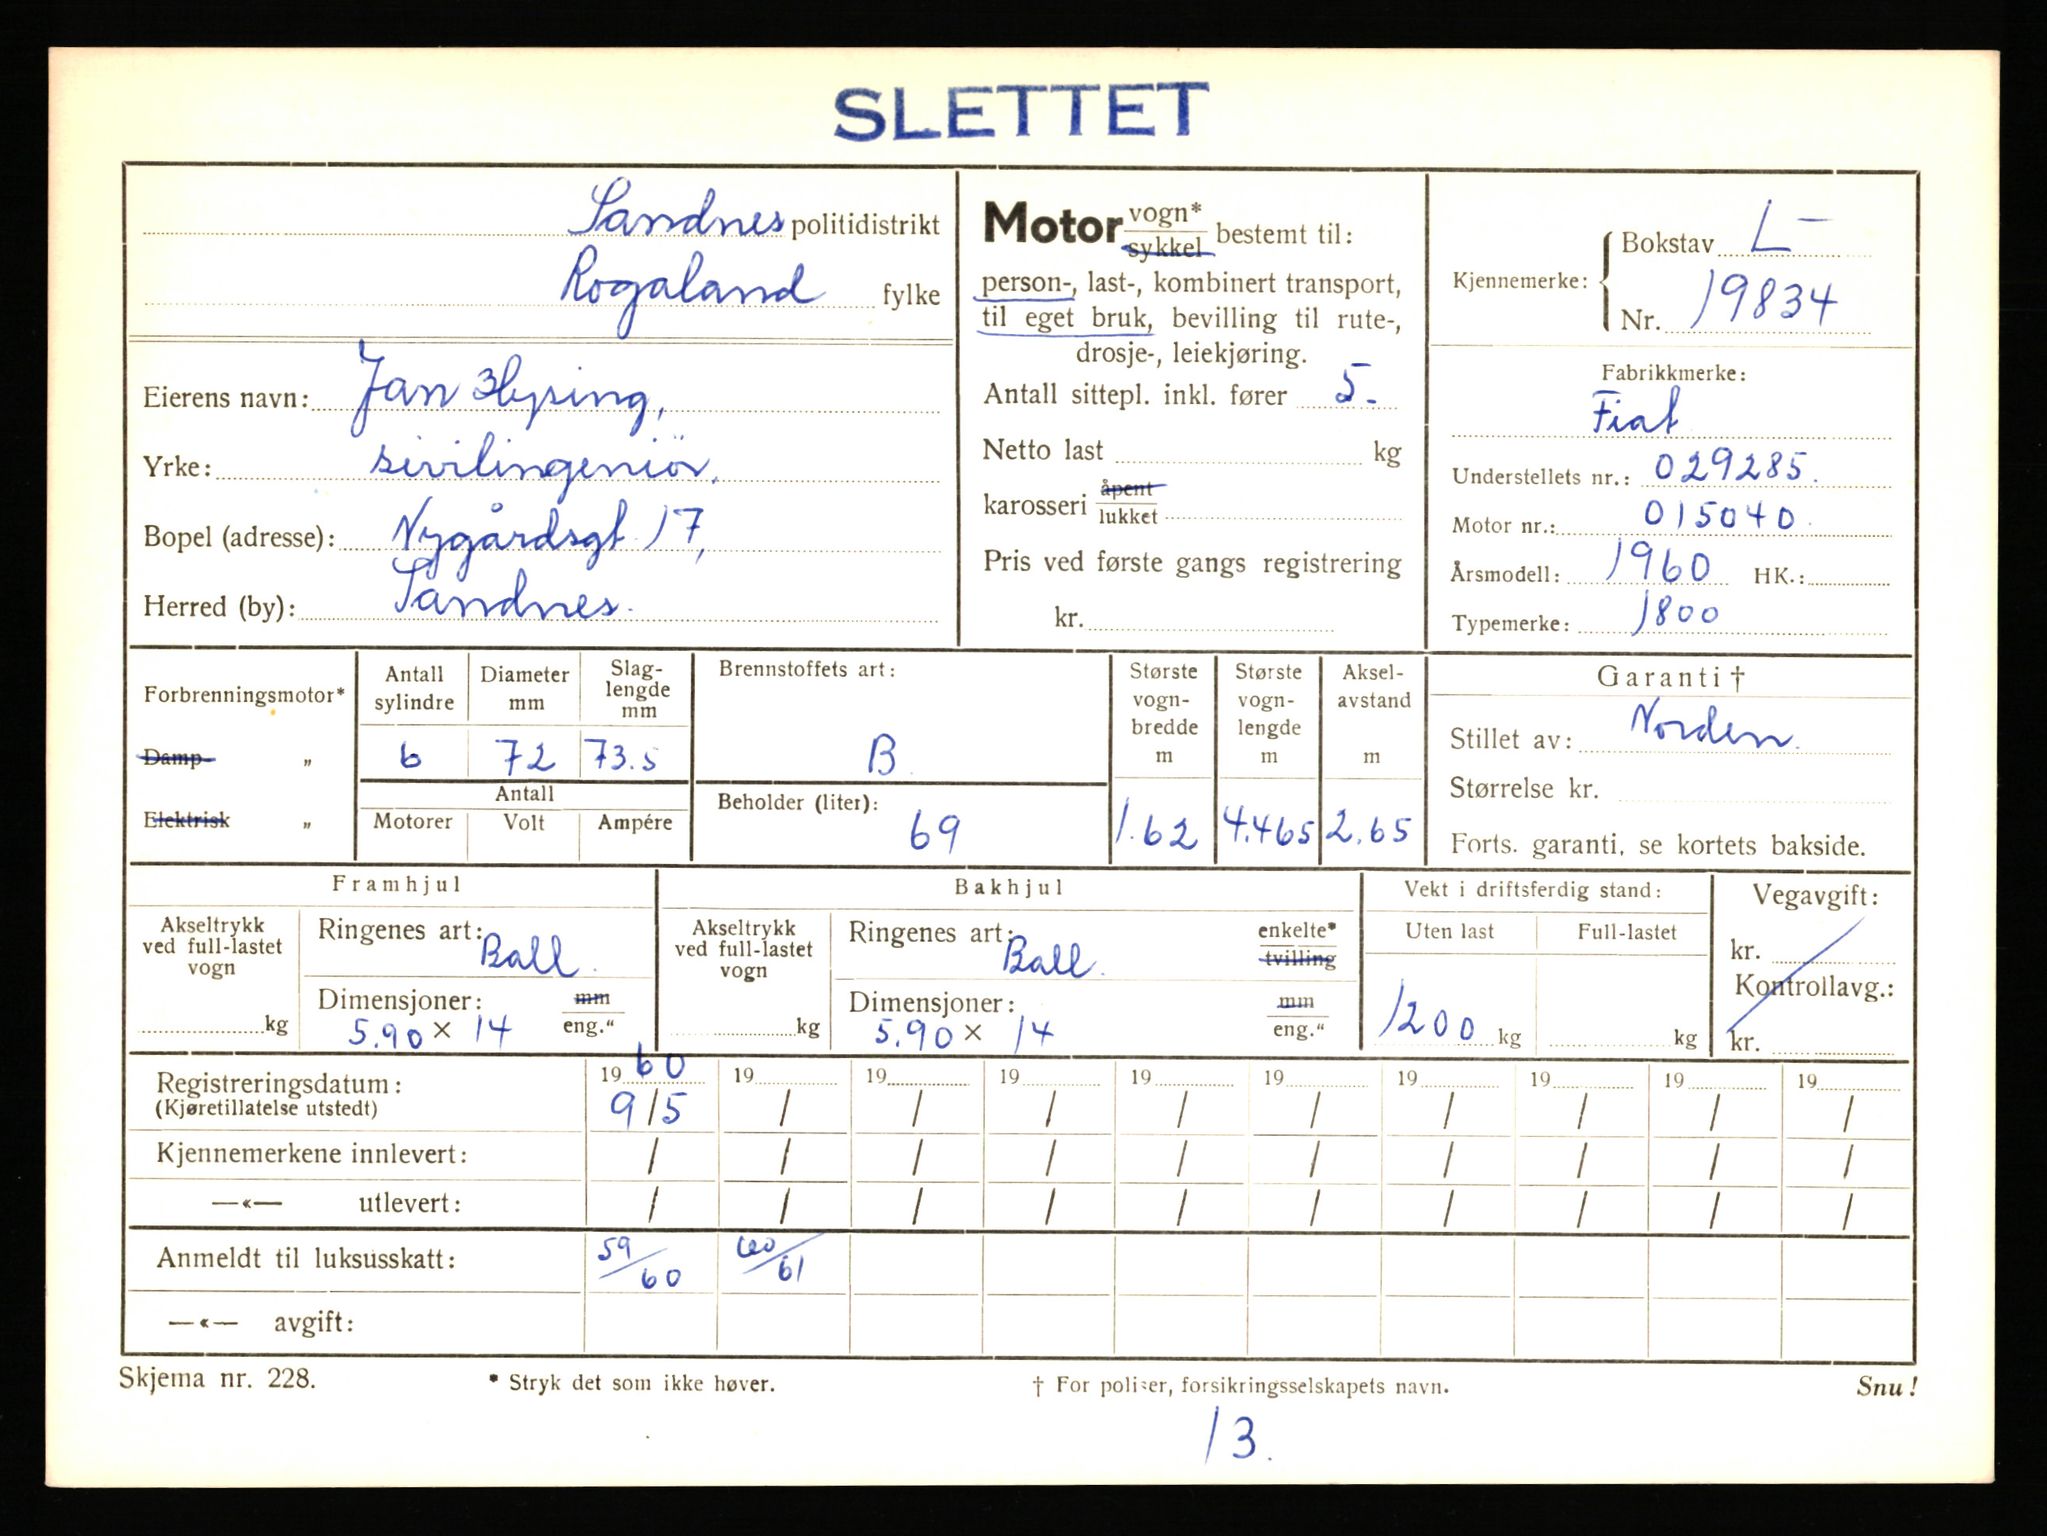 SLETTET
Sandnes politidistrikt
Rogaland fylke
Eierens navn: Jan Hysing,
Yrke: sivilingeniör,
Bopel (adresse): Nygårdsgt 17,
Herred (by): Sandnes.
Motor vogn* / sykkel bestemt til:
person-, last-, kombinert transport,
til eget bruk, bevilling til rute-,
drosje-, leiekjøring.
Antall sittepl. inkl. fører 5.-
Netto last kg
karosseri åpent / lukket
Pris ved første gangs registrering
kr.
Kjennemerke: Bokstav L-
Nr. 19834
Fabrikkmerke:
Fiat
Understellets nr.: 029285.
Motor nr.: 015040.
Årsmodell: 1960 HK.:
Typemerke: 1800
Forbrenningsmotor*
Damp- „
Elektrisk „
Antall sylindre 6
Diameter mm 72
Slag-lengde mm 73.5
Antall
Motorer Volt Ampére
Brennstoffets art:
B
Beholder (liter):
69
Største vogn-bredde m 1.62
Største vogn-lengde m 4.465
Aksel-avstand m 2.65
Garanti †
Stillet av: Norden.
Størrelse kr.
Forts. garanti, se kortets bakside.
Framhjul
Akseltrykk ved full-lastet vogn
kg
Ringenes art: Ball.
Dimensjoner: mm
5.90 × 14 eng.“
Bakhjul
Akseltrykk ved full-lastet vogn
kg
Ringenes art: Ball. enkelte* / tvilling
Dimensjoner: mm
5.90 × 14 eng.“
Vekt i driftsferdig stand:
Uten last Full-lastet
1200 kg kg
Vegavgift:
kr.
Kontrollavg.:
kr.
Registreringsdatum: 1960 19 19 19 19 19 19 19 19 19
(Kjøretillatelse utstedt) 9/5 / / / / / / / / /
Kjennemerkene innlevert: / / / / / / / / / /
—«— utlevert: / / / / / / / / / /
Anmeldt til luksusskatt: 59/60 60/61
—«— avgift:
Skjema nr. 228. * Stryk det som ikke høver. † For poliser, forsikringsselskapets navn. Snu!
13.